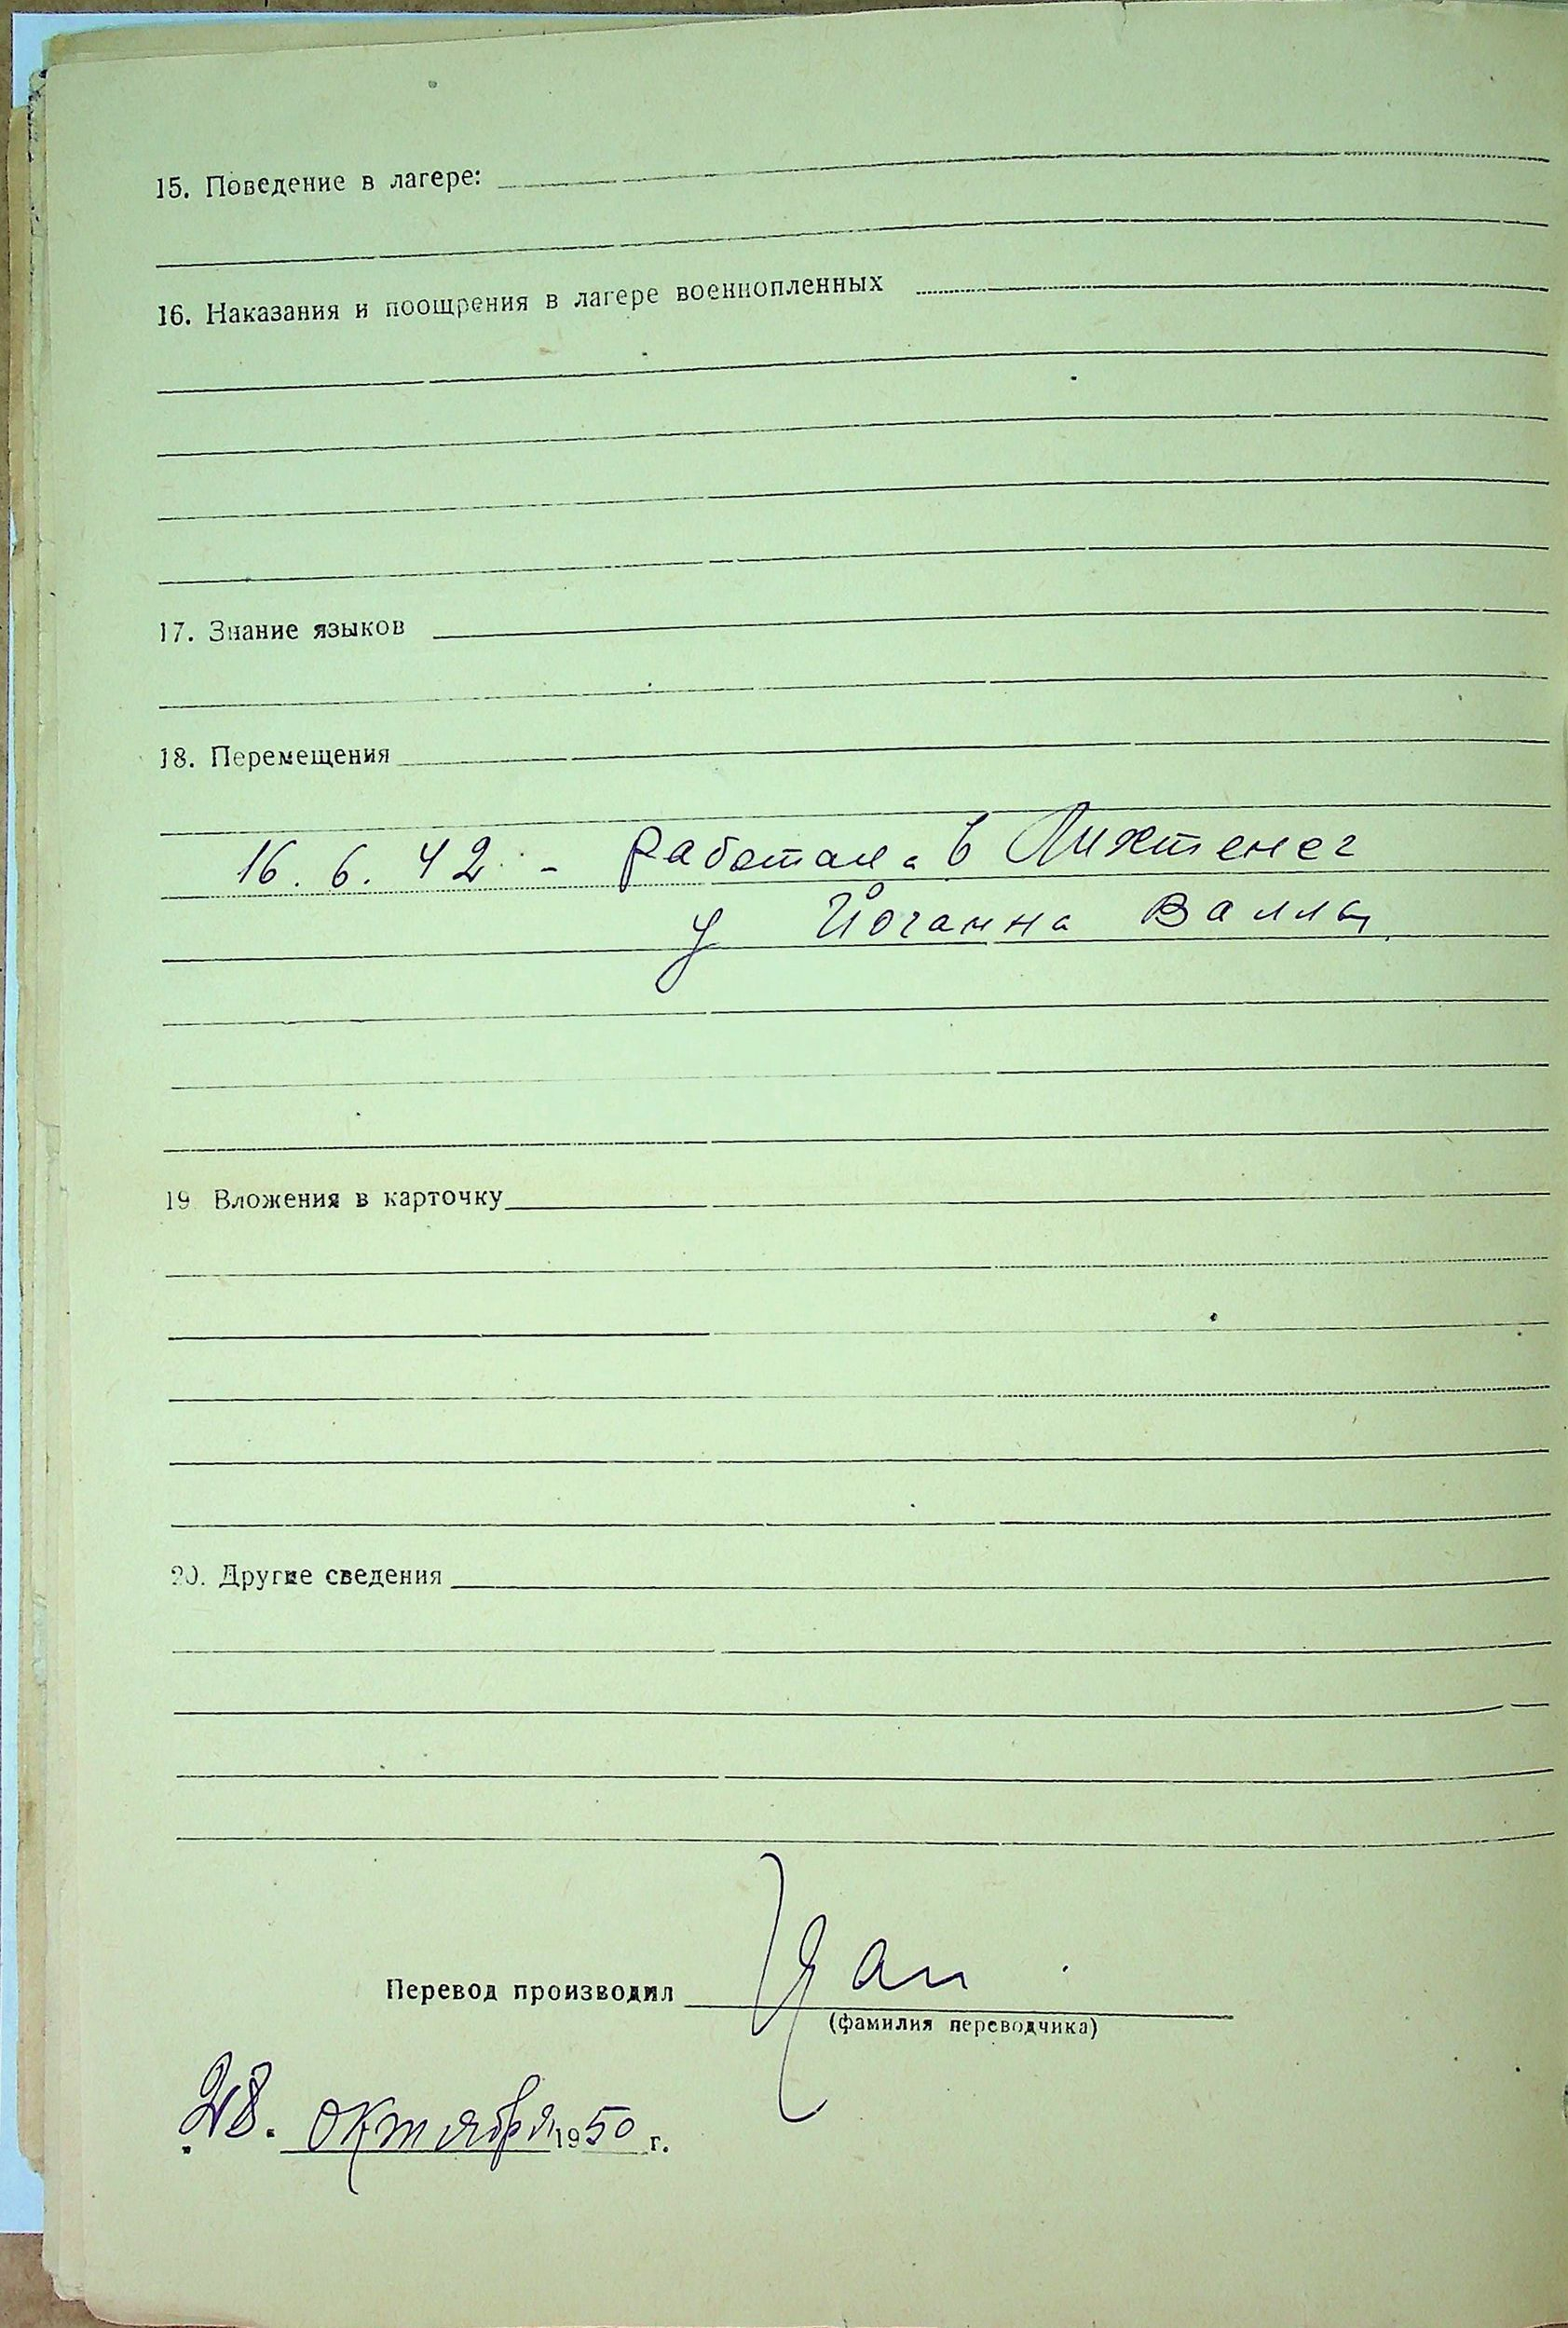 15. Поведение в лагере:
16. Наказания и поощрения в лагере военнопленных
17. Знание языков
18. Перемещения
16. 6. 42. - работал в Лихтенег
у Йоганна Валлы
19 Вложения в карточку
20. Другие сведения
Перевод производил
(фамилия переводчика)
28. октября 1950 г.